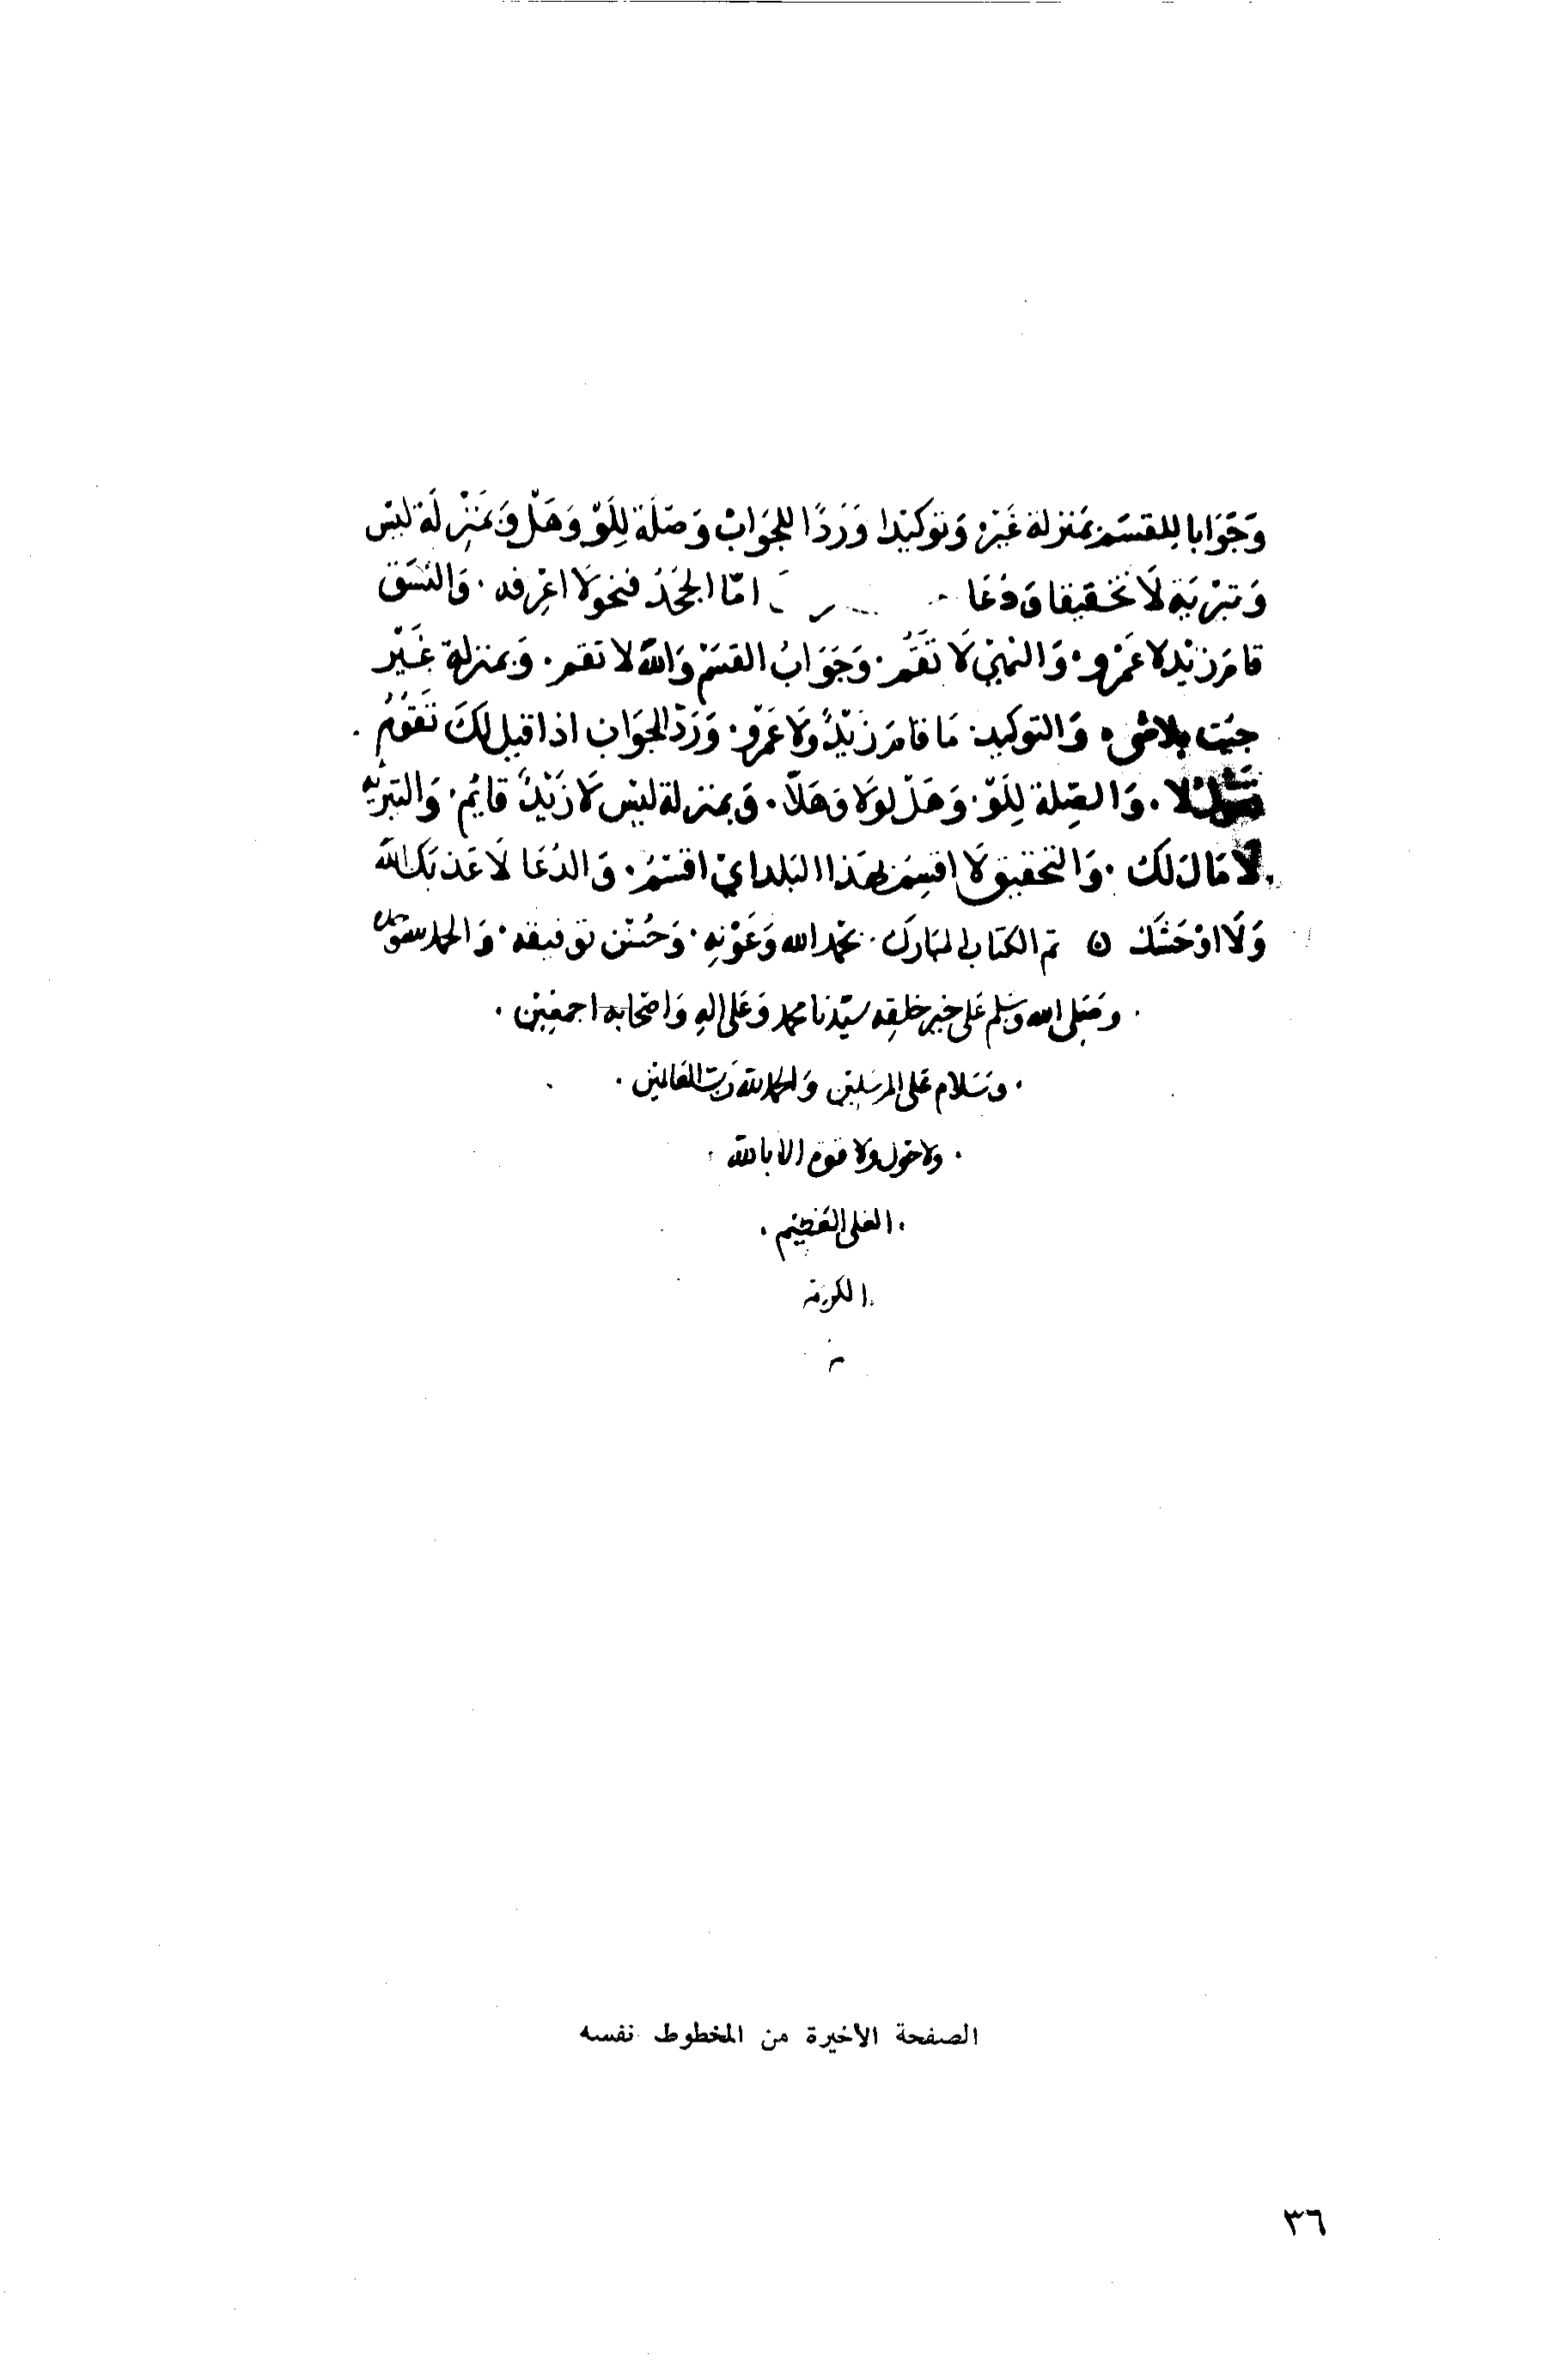 وَجَوَابا للقسَم بمَنزلة غَيْر وَتوكيْدا وَرَدًا للجَوَابْ وَصْلَة لِلَوْ وَهَلْ وَبمَنْزِلَة ليْس
وَتبْريَة لَا تحقيقا وَدُعَا امّا الجَحْدُ فنحو لَا اعْرفه ٠ وَالنسَق
قامَ زيْد لا عَمْرو ٠ وَالنهْيُ لَا تَقُمْ ٠ وَجَوَابُ القسَمْ وَاللّه لا تقم ٠ وَبمنزلة غيْر
جيْت بلا شيء ٠ وَالتوكيد ٠ مَا قامَ زَيْدٌ وَلَا عَمْرو ٠ وَرَدْ الجوَاب اذا قيل لكَ تَقُوْمُ ٠
لا ٠ وَالصِلة لِلَوْ ٠ وَهَلْ لوْلَا وَهَلّا ٠ وَبمنزلة ليْس لَا زَيْدٌ قايْم ٠ وَالتبريه
لا مَال لكْ ٠ وَالتحقيق لَا اقسِمُ بهَذا البَلد ايْ اقسمُ ٠ وَالدُعَا لَا عَذبَك اللّه
وَلَا اوْحَشَكْ ن تم الكتاب المبَارَك ٠ بحمد الله وَعَوْنِهِ ٠ وَحُسْن توفيقه ٠ وَالحمد لله
٠ وصَلى الله وسَلم عَلى خيْر خلقِه سيّدنا محمد وَعَلى الهِ وَاصْحَابه اجمعِيْن ٠
٠ وَسَلام عَلى المرسَليْن وَالحمد للّه رَبّ العَالميْن ٠
٠ ولا حَول ولا قوة الا بالله
٠ العَلي العَظيْم ٠
الصفحة الأخيرة من المخطوط نفسه
٣٦